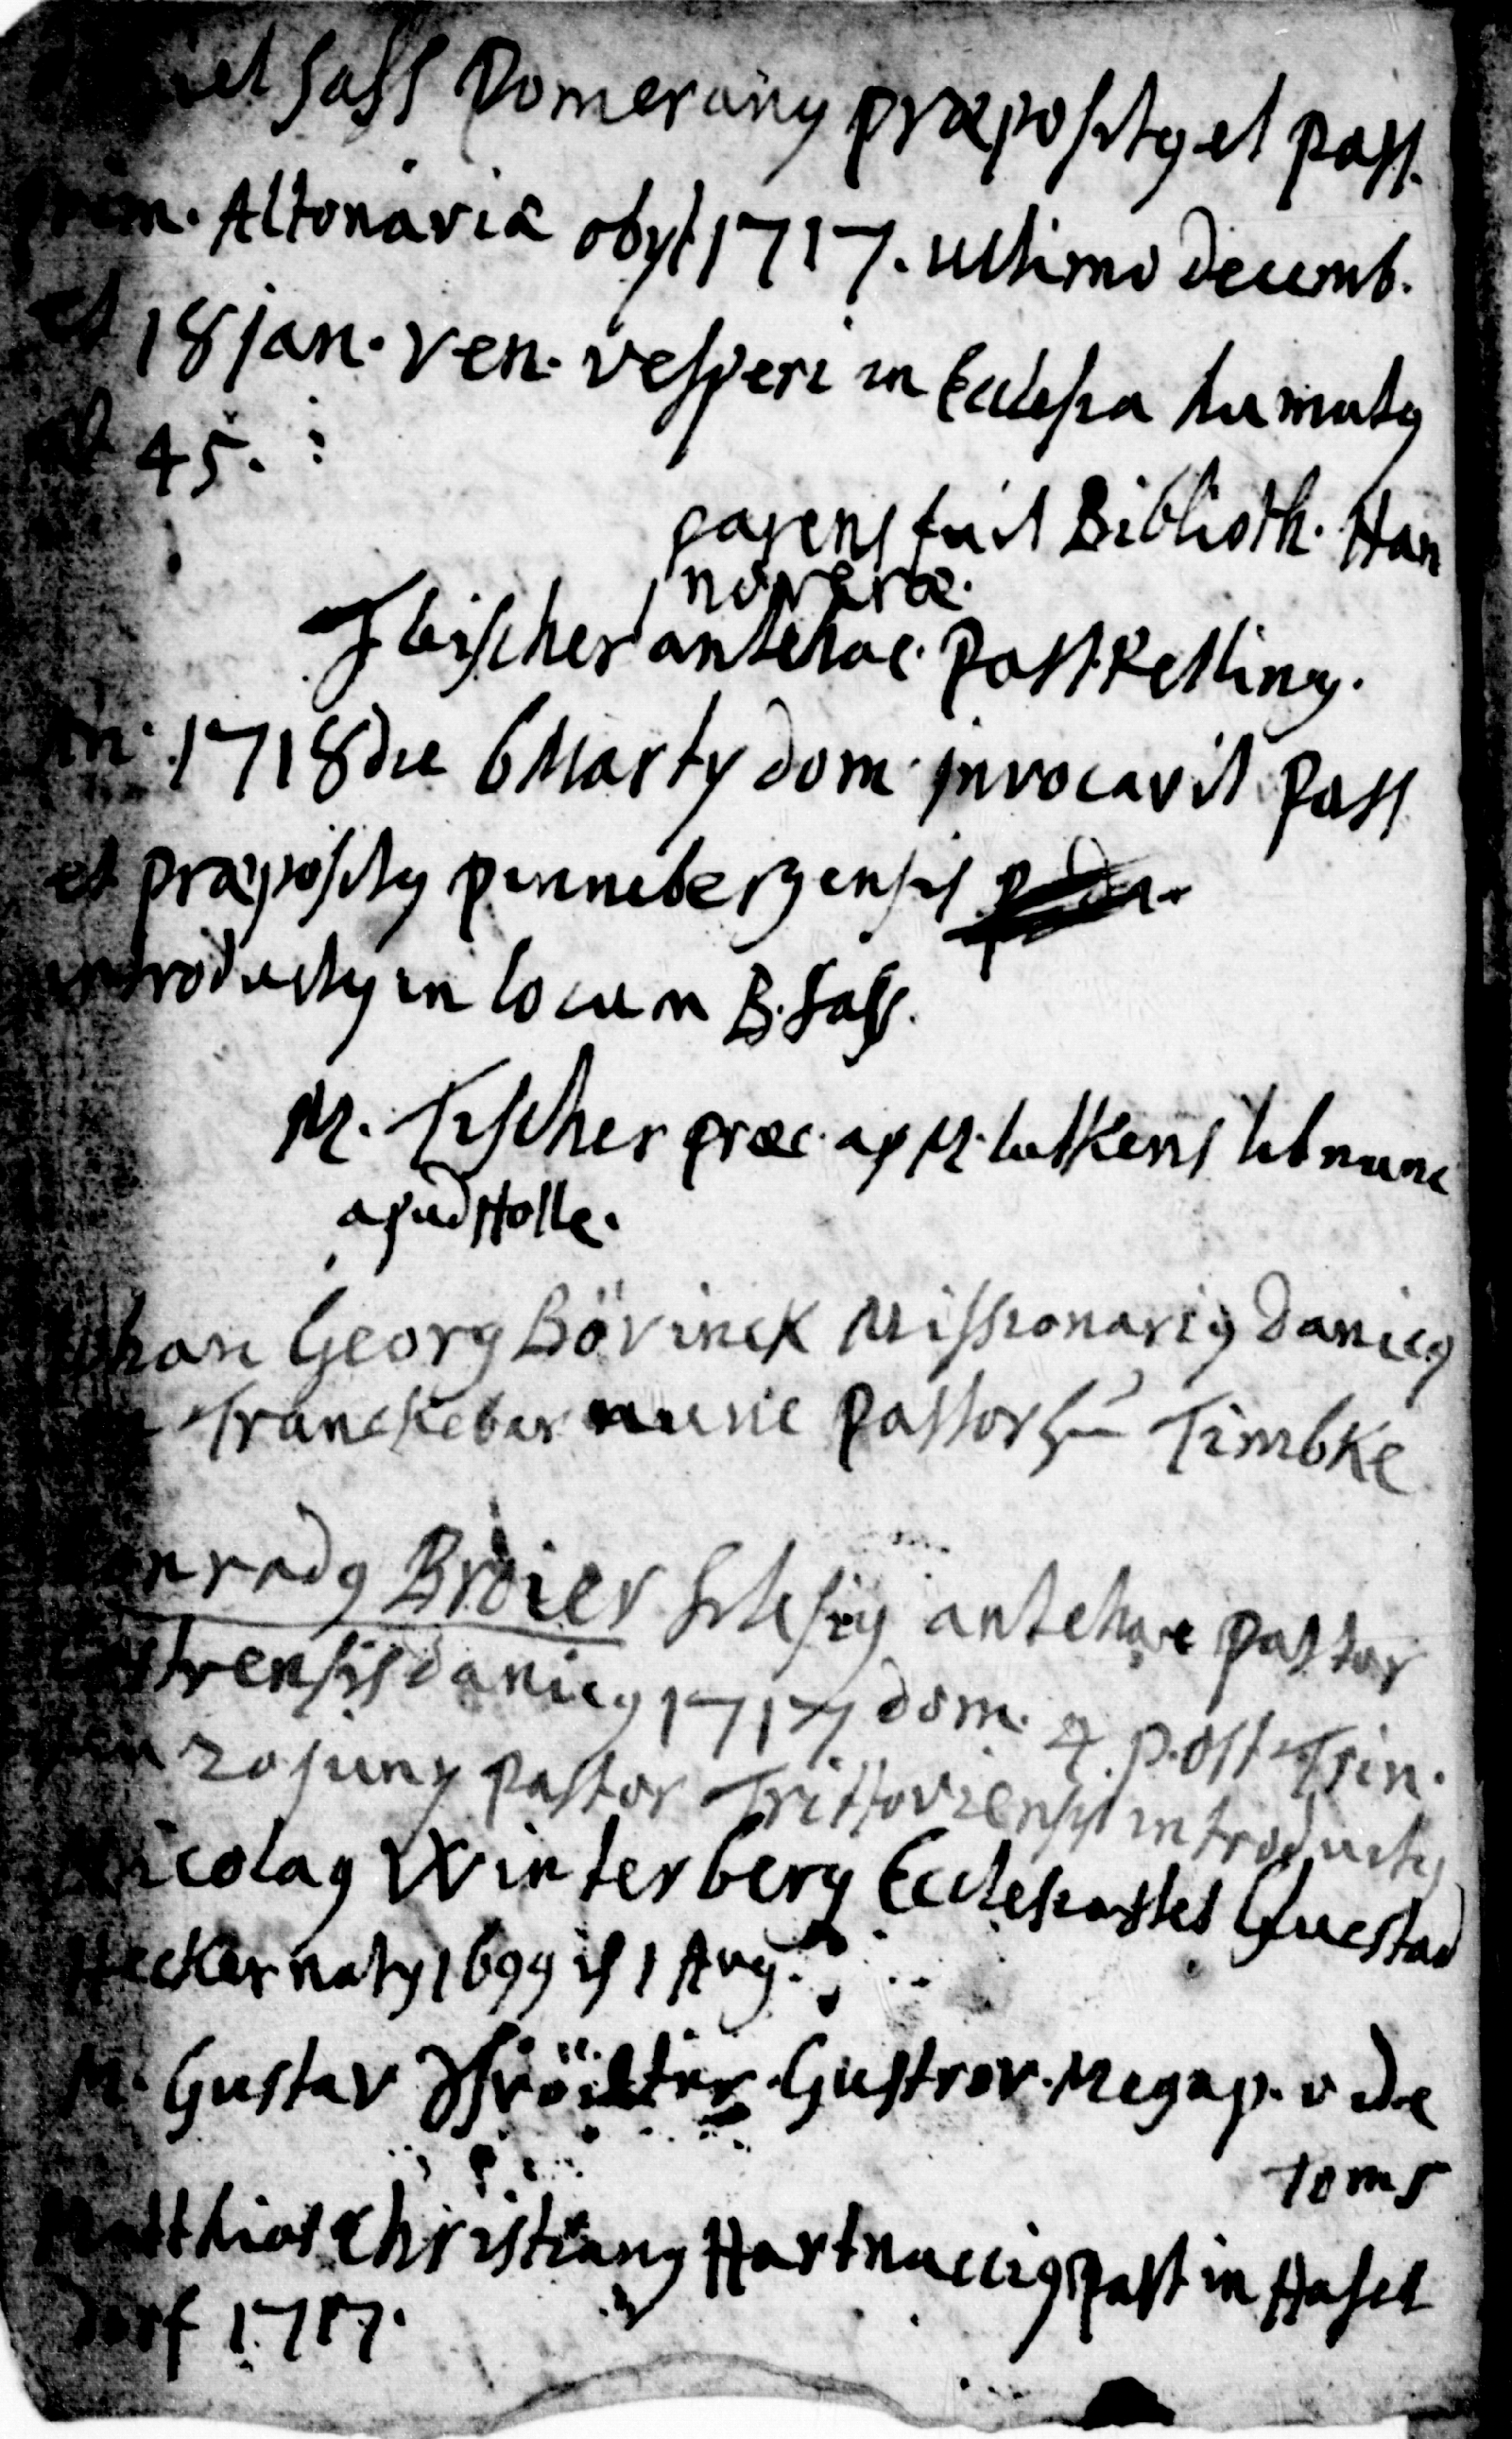 Sass Pomeranꝰ præpositꝰ et past.
prim. Altonaviæ obyt 1717. ultimo decemb.
et 18 jan. ven. vesperi in Ecclesia humatꝰ
æt 45.
parens fuit Biblioth. Han
noveræ.
Fleischer antehac past. Kelling.
An. 1718 die 6 Marty dom invocavit past
et præpositꝰ pinnebergensis
introductꝰ in locum B. Sass.
M. Fischer præc. ap M. lutkens nunc
apud Holle.
Johan Georg Bövinck Missionariꝰ danicꝰ
Tranckebar nunc pastor zu Timbke
Conradꝰ Broier Silesiꝰ antehac pastor
castrensis danicꝰ 1717 dom. 4 post Trin.
20 juny pastor Trittoviensis introductꝰ
Nicolaꝰ Winterberg Ecclesiastes
Hecker natꝰ 1699 is 1 Aug.
M. Gustav Gustrov. Megap. vide
Toms
Matthias Christianꝰ Hartnacciꝰ past in Hasel
dorf 1717.